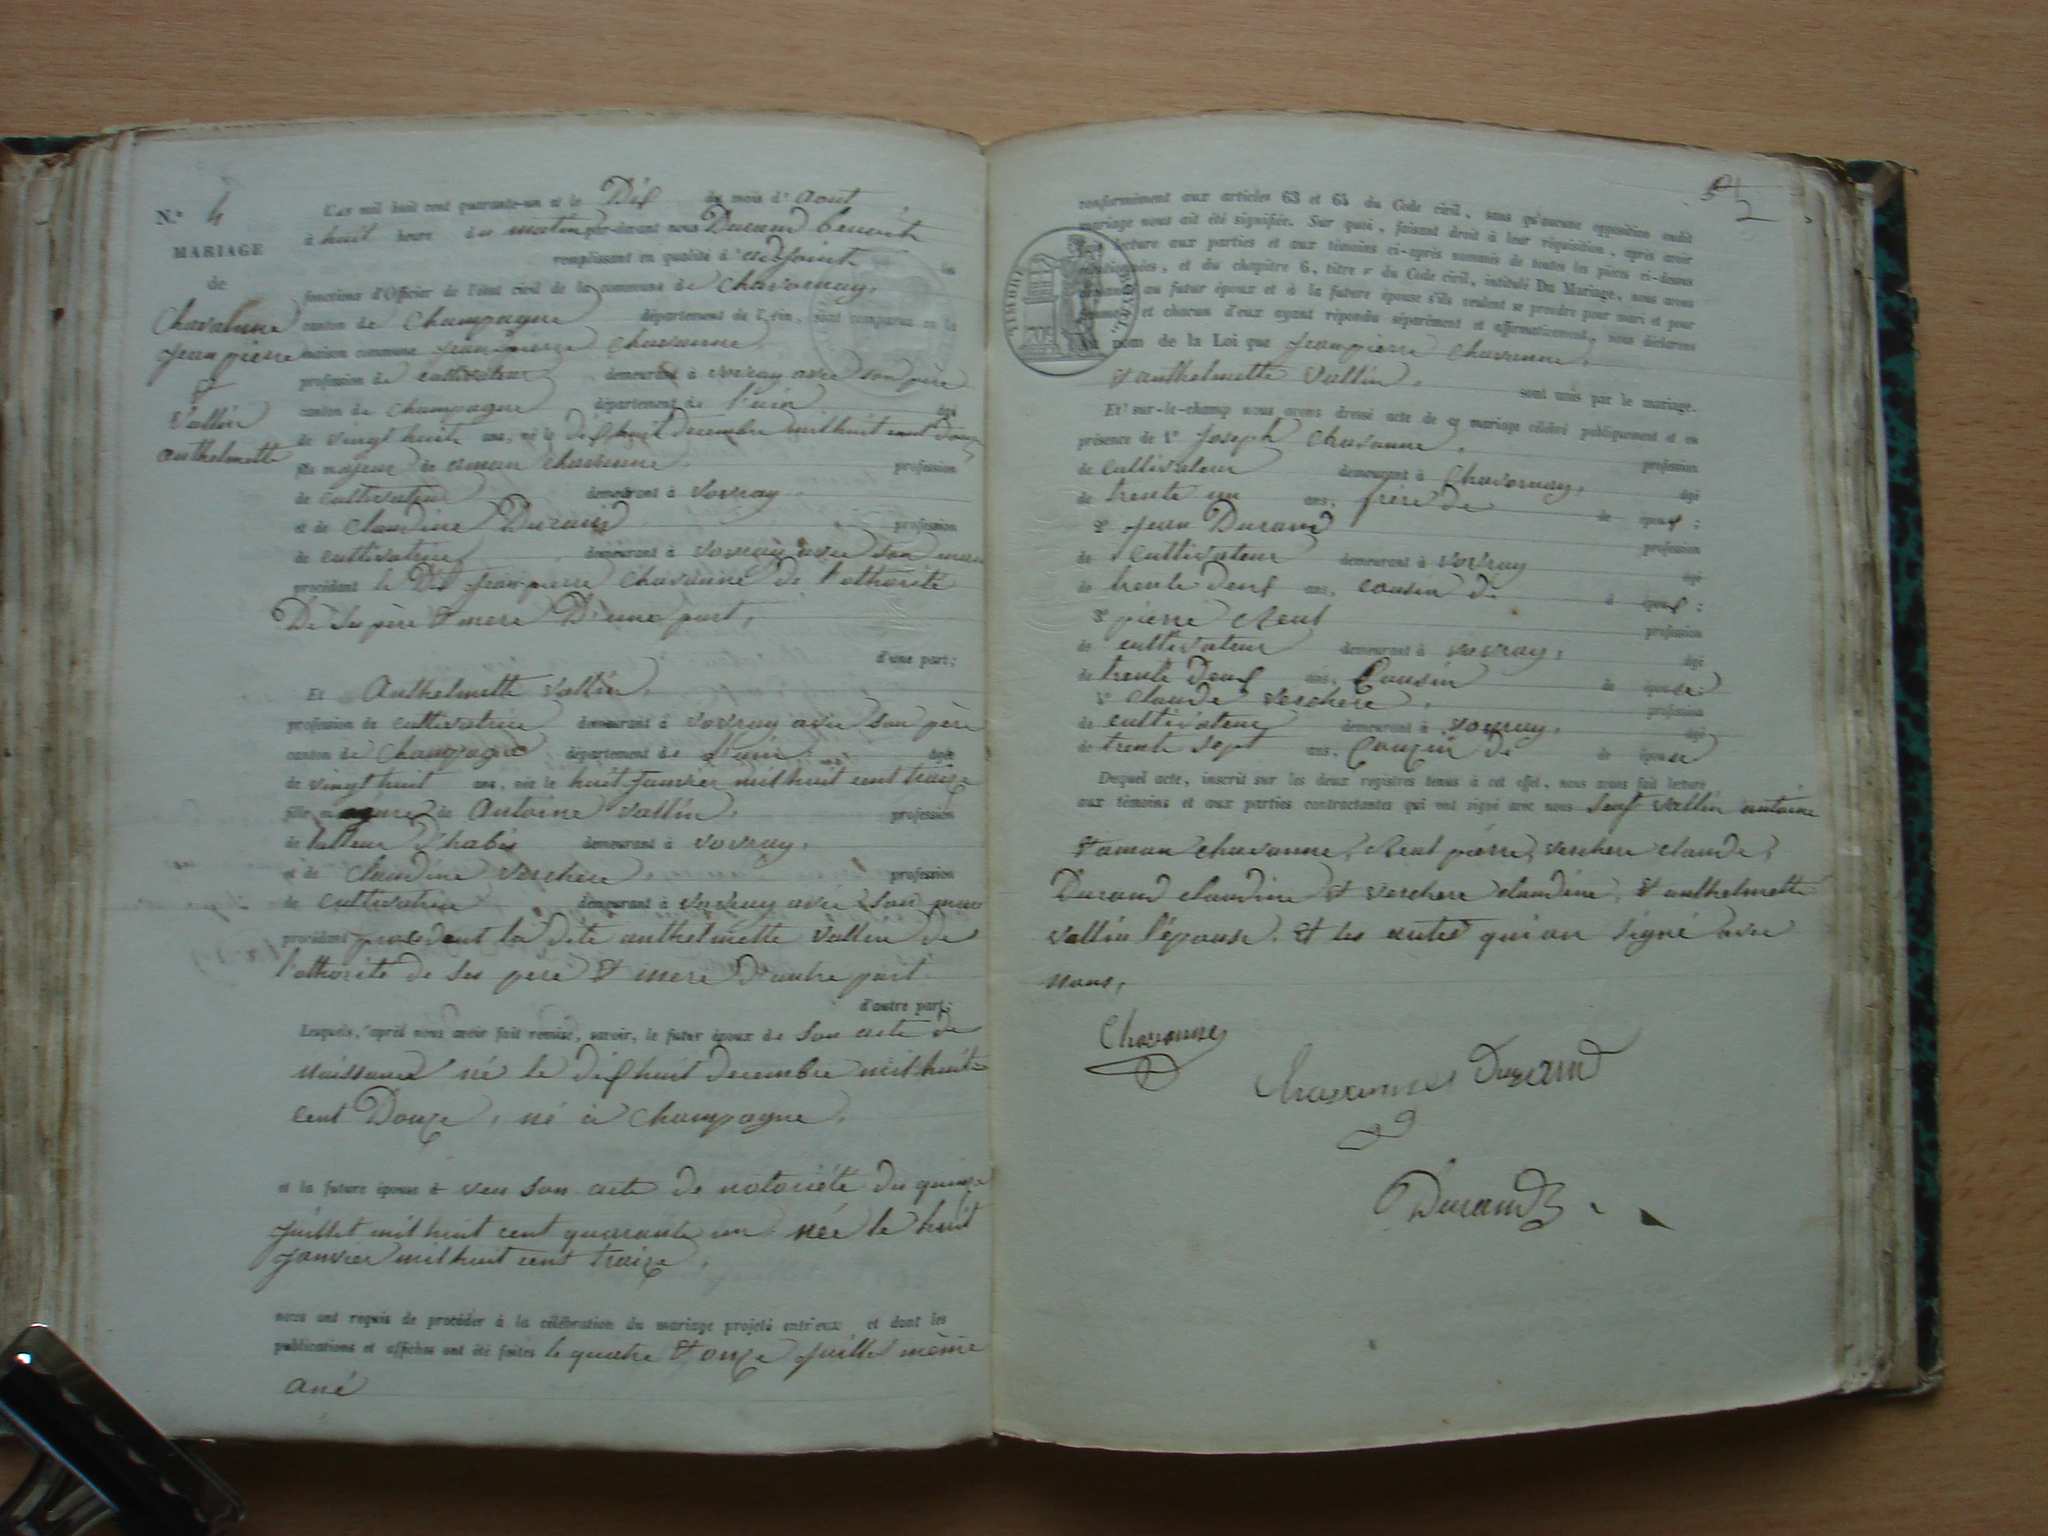 N.º 4
MARIAGE
de
Chavanne
Jean pierre
&
Vallin
anthelmette
L'an mil huit cent quarante-un et le Dix du mois d'aout
à huit heure du matin par-devant nous Durand benoit
remplissant en qualité d'adjoint les
fonctions d'Officier de l'état civil de la commune de Chavornay,
canton de Champagne département de l'Ain, sont comparus en la
maison commune Jean pierre Chavanne
profession de cultivateur demeurant à vovray avec son père
canton de Champagne département de l'ain âgé
de vingt huit ans, né le dix huit decembre mil huit cent douze
fils majeur de aman Chavanne, profession
de cultivateur demeurant à vovray,
et de Claudine Durand, profession
de cultivatrice demeurant à vovray avec son mari
procédant le Dit Jean pierre Chavanne de l'othorité
De Ses père & mere D'une part,
d'une part;
Et Anthelmette vallin,
profession de cultivatrice demeurant à vovray avec son père
canton de Champagne département de l'ain âgée
de vingt huit ans, née le huit Janvier mil huit cent traize
fille majeure de Antoine vallin, profession
de talleur d'habis demeurant à vovray,
et de Claudine verchere, profession
de cultivatrice demeurant à vovray avec son mari
procédant procedant la dite anthelmette vallin de
l'othorite de ses pere & mere D'autre part
d'autre part;
Lesquels, après nous avoir fait remise, savoir, le futur époux de son acte de
naissance né le dix huit decembre mil huit
cent Douze, né à Champagne,
et la future épouse à veu son acte de notoriété du quinze
Juillet mil huit cent quarante un née le huit
Janvier mil huit cent traize,
nous ont requis de procéder à la célébration du mariage projeté entr'eux et dont les
publications et affiches ont été faites le quatre & onze Juillet même
ané
conformément aux articles 63 et 64 du Code civil, sans qu'aucune opposition audit
mariage nous ait été signifiée. Sur quoi, faisant droit à leur réquisition, après avoir
lecture aux parties et aux témoins ci-après nommés de toutes les pièces ci-dessus
mentionnées, et du chapitre 6, titre v du Code civil, intitulé Du Mariage, nous avons
demandé au futur époux et à la future épouse s'ils veulent se prendre pour mari et pour
femme; et chacun d'eux ayant répondu séparément et affirmativement, nous déclarons
au nom de la Loi que Jean pierre Chavanne,
& anthelmette Vallin, sont unis par le mariage.
TIMBRE ROYAL
Et sur-le-champ nous avons dressé acte de ce mariage célébré publiquement et en
présence de 1º Joseph Chavanne, profession
de cultivateur demeurant à Chavornay, âgé
de trente un ans, frère de de époux;
2º Jean Durand profession
de cultivateur demeurant à vovray âgé
de trente deux ans, cousin de époux;
3º pierre Reul profession
de cultivateur demeurant à vovray, âgé
de trente Deux ans, Cousin de épouse;
4º Claude verchere, profession
de cultivateur demeurant à vovray, âgé
de trente sept ans, Couzin de de épouse
Duquel acte, inscrit sur les deux registres tenus à cet effet, nous avons fait lecture
aux témoins et aux parties contractantes qui ont signé avec nous Sauf vallin antoine
& aman chavanne, Reul pierre, verchere claude,
Durand claudine & verchere claudine, & anthelmette
vallin l'épouse, & les autre qui on signé avec
nous,
Chavanne
Chavanne Durand
Durand